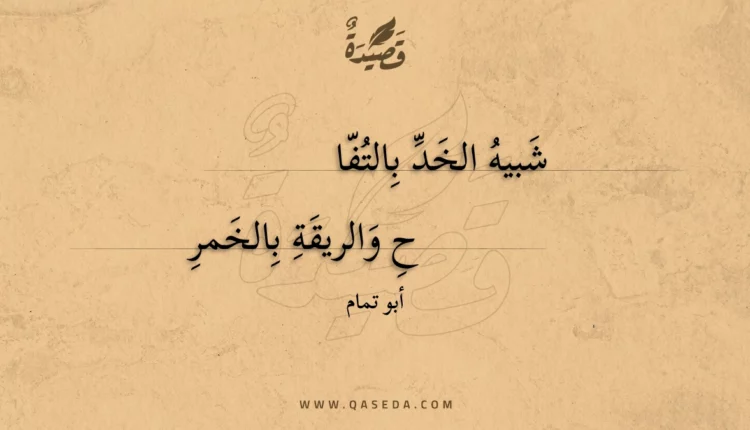 قَصِيْدَةٌ
شَبيهُ الخَدِّ بِالتُفّا
حِ وَالريقَةِ بِالخَمرِ
أبو تمام
WWW.QASEDA.COM